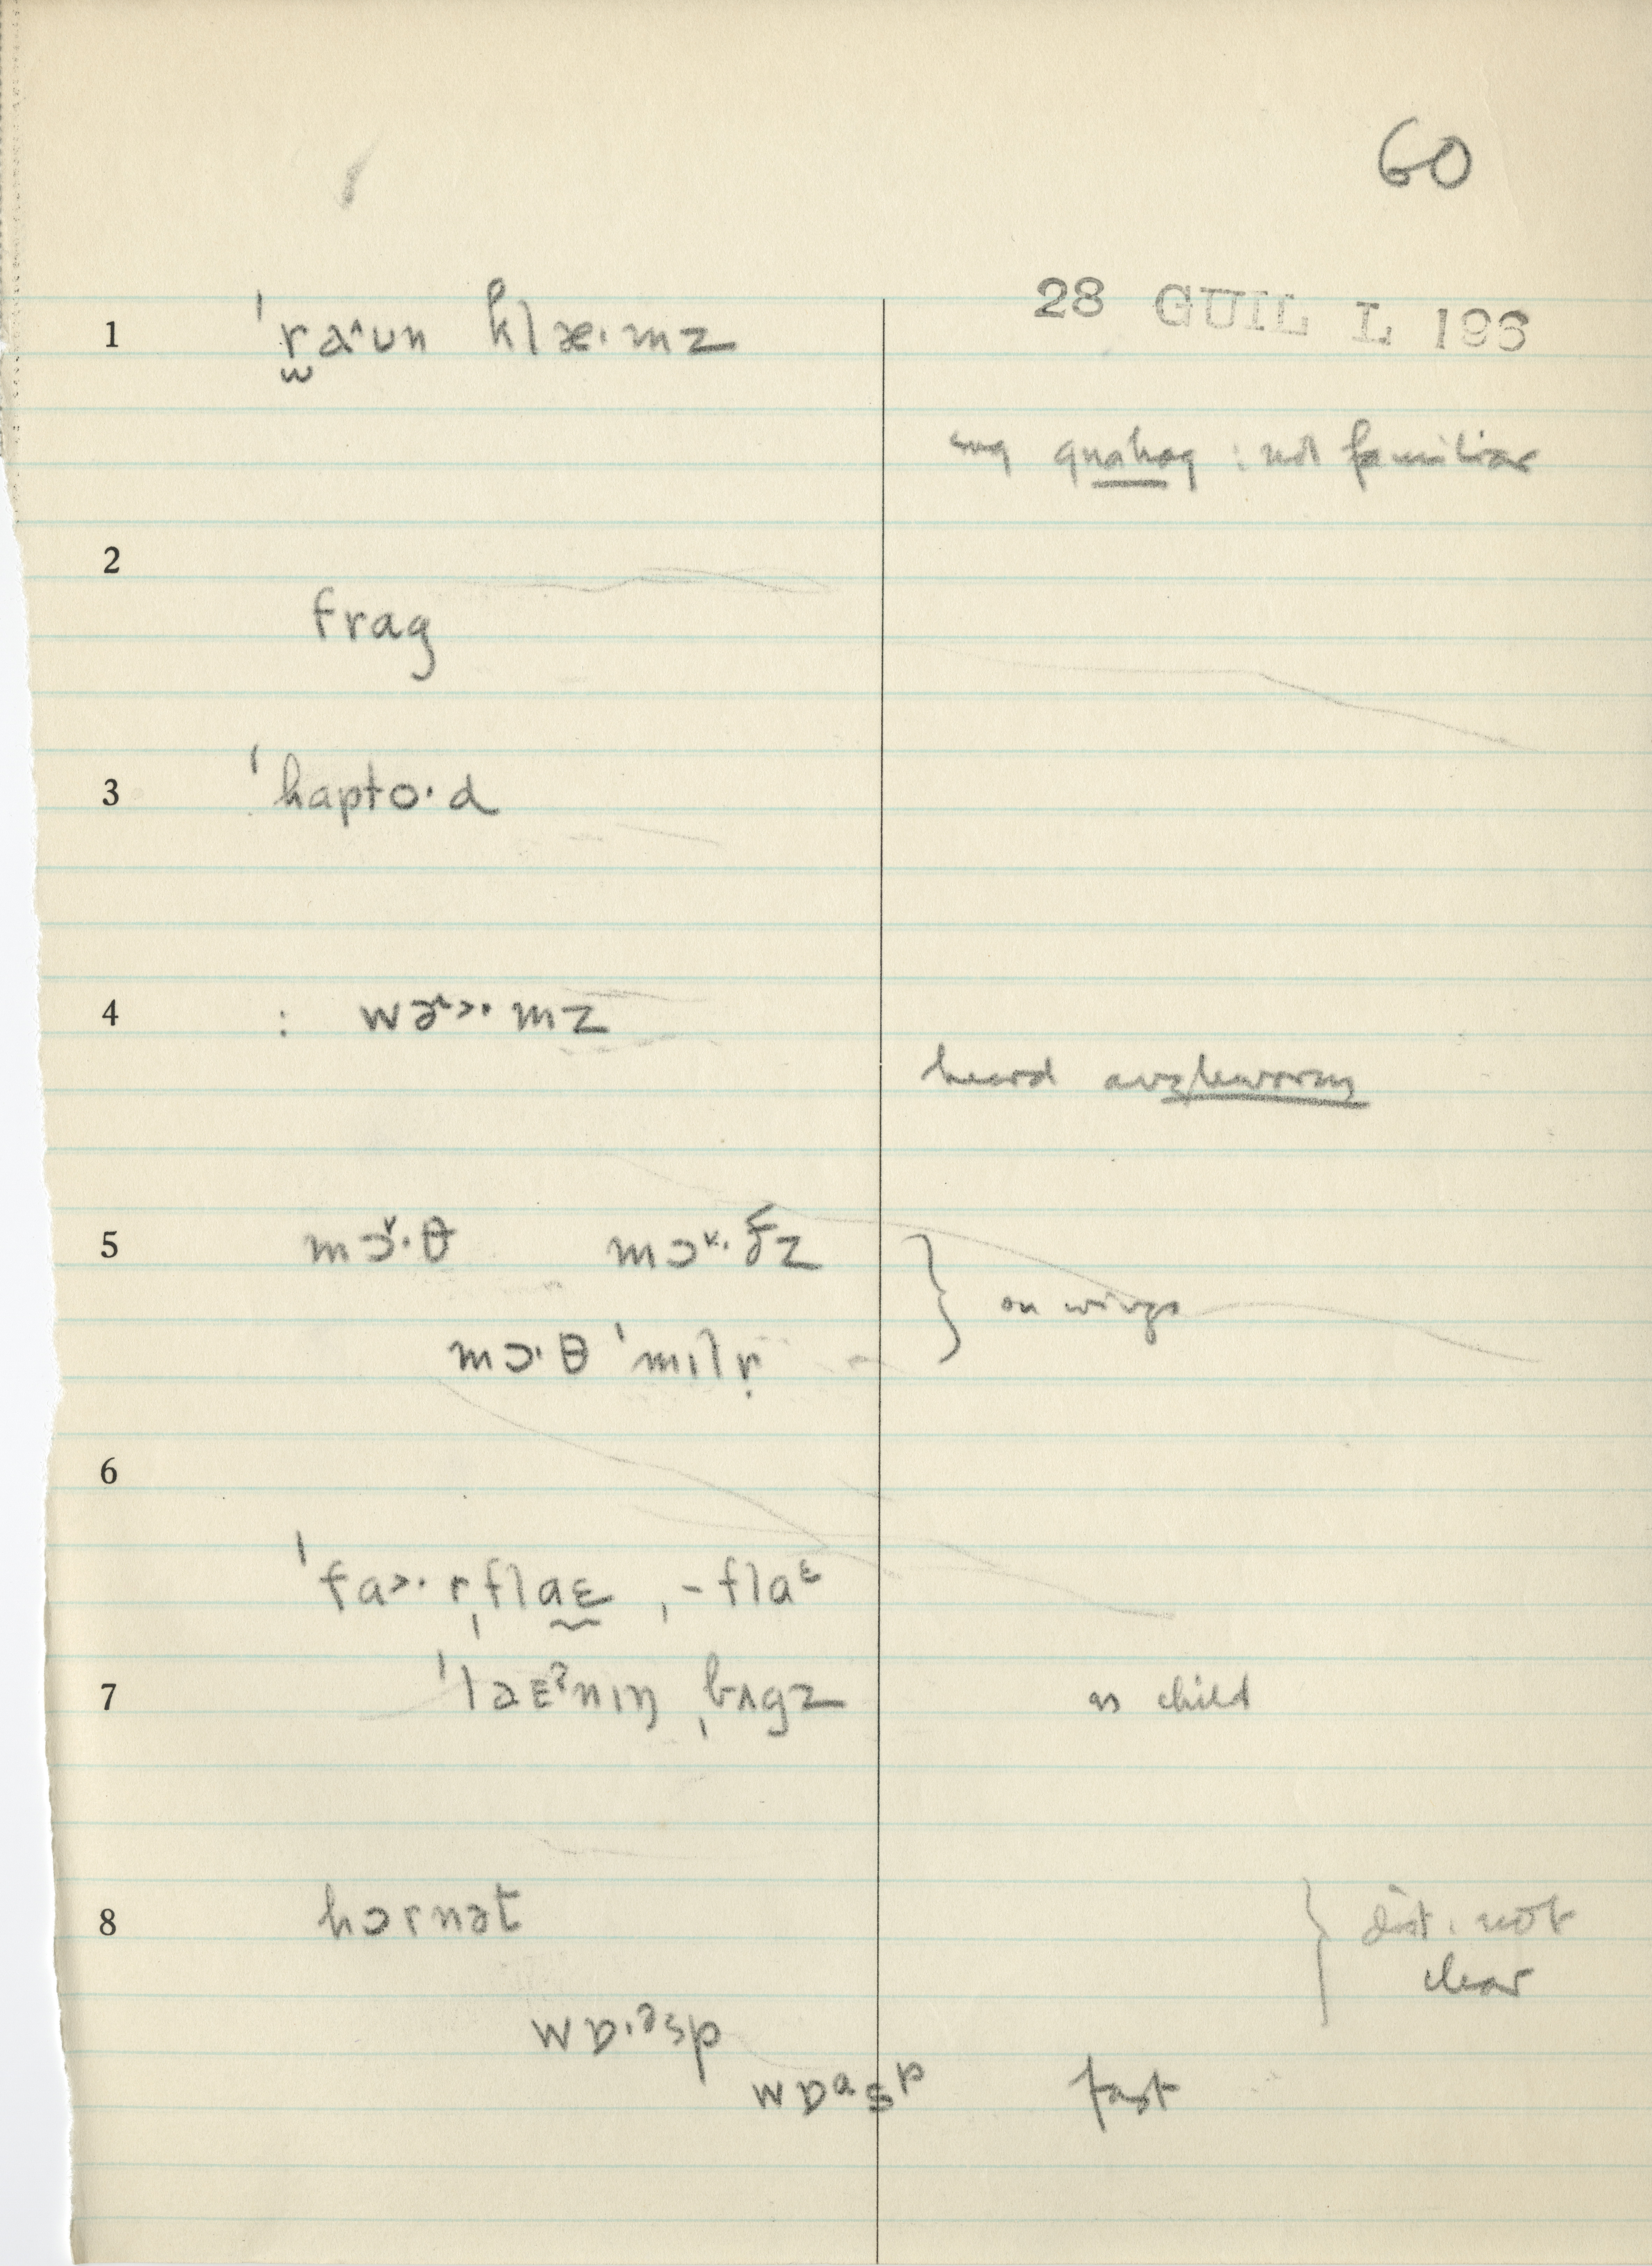 60
28 GUIL L 196
1 ˈr̫aˆʊn klæ·mz
sug quahog : not familiar
2
frag
3 ˈhapto·d
4 : wɚ˄˃·mz
heard angleworm
5 mɔ˅·θ mɔ˅·ðz
mɔ·θ ˈmɪlr̩ } on wings
6
ˈfa˃·rˌflaɛ, -flaᵋ
7 ˈlaɛᵊnɪŋ ˌbʌgz as child
8 hɔrnət } dist. not
clear
wɒ·ᵊsp
wɒᵃsp fast